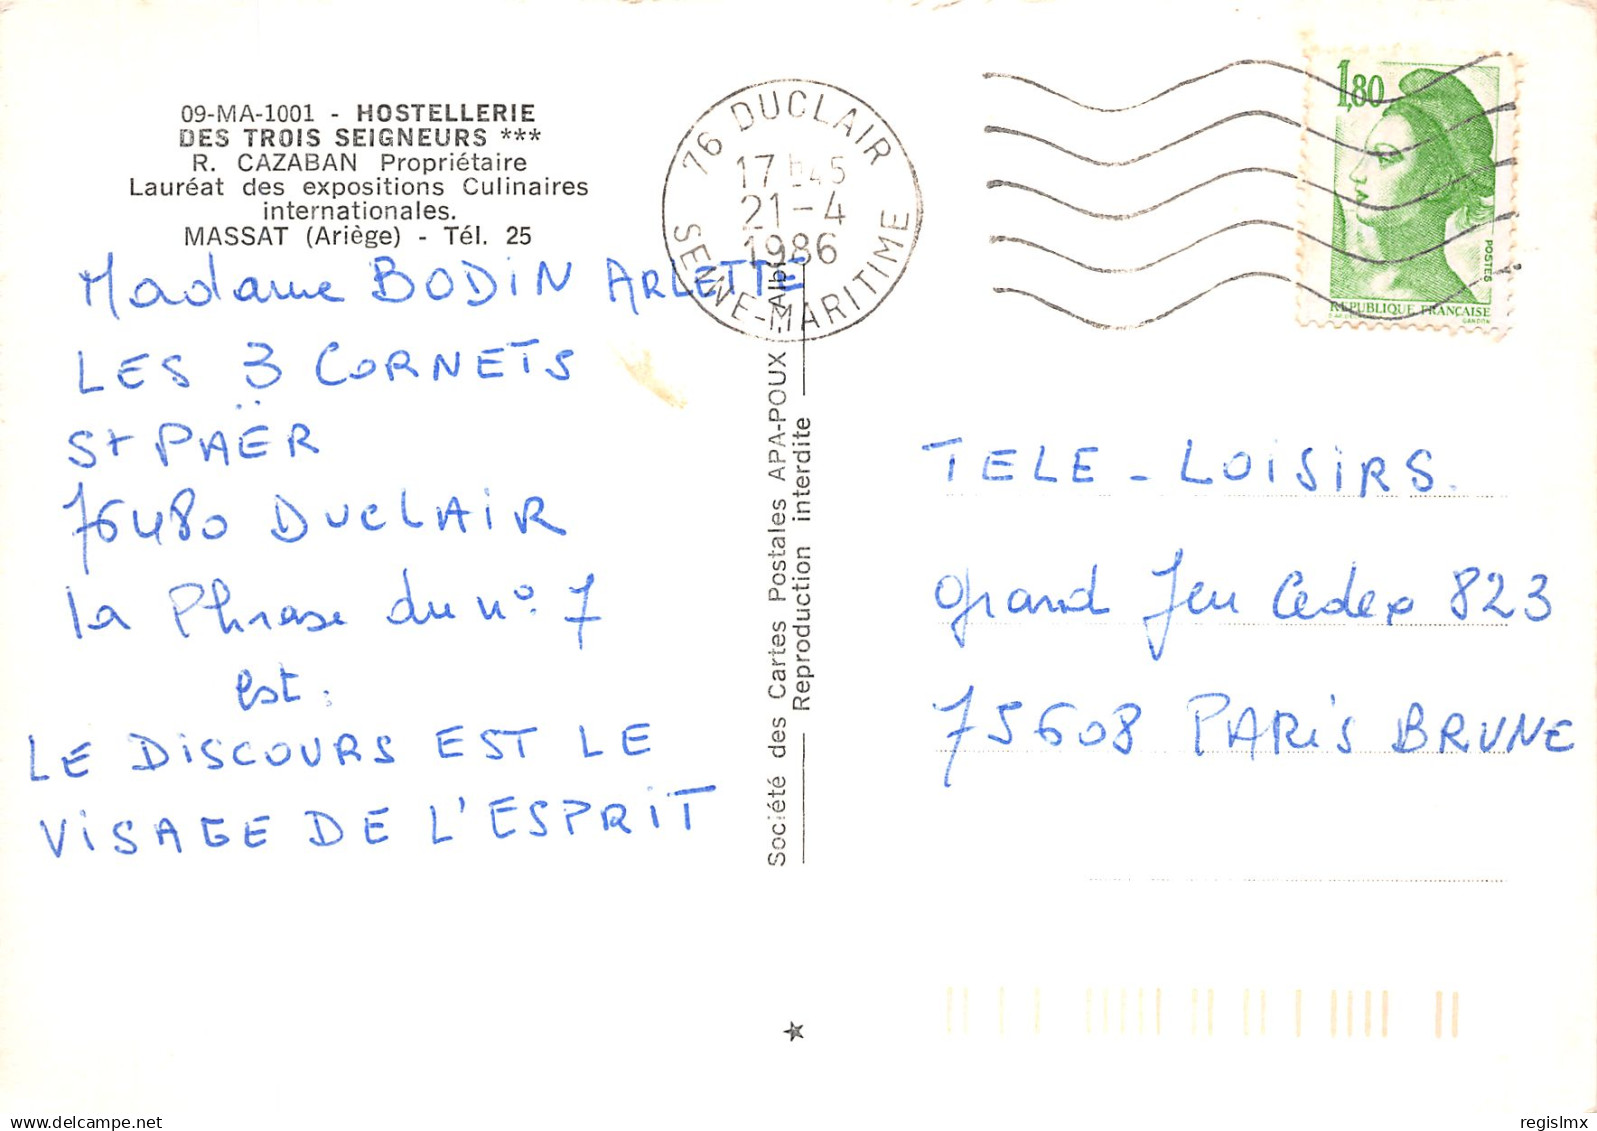 09-MA-1001 - HOSTELLERIE
DES TROIS SEIGNEURS ***
R. CAZABAN Propriétaire
Lauréat des expositions Culinaires
internationales.
MASSAT (Ariège) - Tél. 25
Madame BODIN ARLETTE
LES 3 CORNETS
St PAËR
76480 DUCLAIR
la Phrase du n° 7
est :
LE DISCOURS EST LE
VISAGE DE L'ESPRIT
76 DUCLAIR
17 H45
21-4
1986
SEINE-MARITIME
Société des Cartes Postales APA-POUX - Albi
Reproduction interdite
1,80
POSTES
REPUBLIQUE FRANÇAISE
GANDON
TELE - LOISIRS.
grand Jeu Cedex 823
75608 PARIS BRUNE
delcampe.net
regislmx